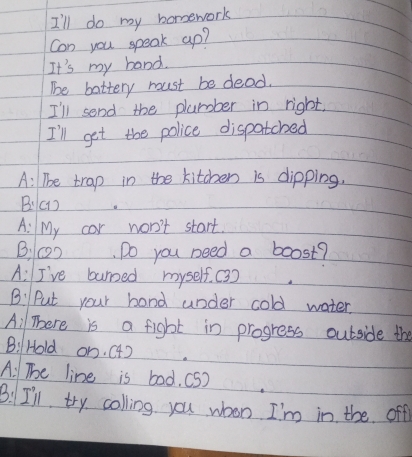 I'll do my homework
Can you speak up?
It's my hand.
The battery must be dead.
I'll send the plumber in right.
I'll get the police dispatched
A: The trap in the kitchen is dipping.
B: (1) .
A: My car won't start.
B: (2) . Do you need a boost?
A: I've burned myself. (3) .
B: Put your hand under cold water.
A: There is a fight in progress outside the
B: Hold on. (4) .
A: The line is bad. (5) .
B: I'll try calling you when I'm in the off